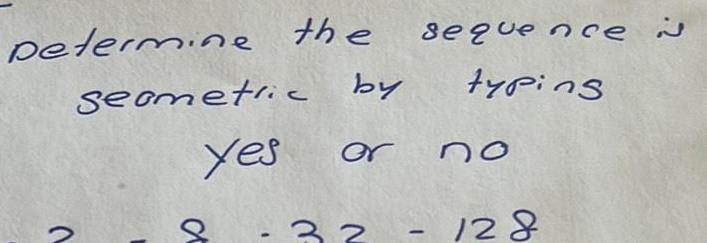 Determine the sequence is
geometric by typing
yes or no
-2 -8 -32 -128